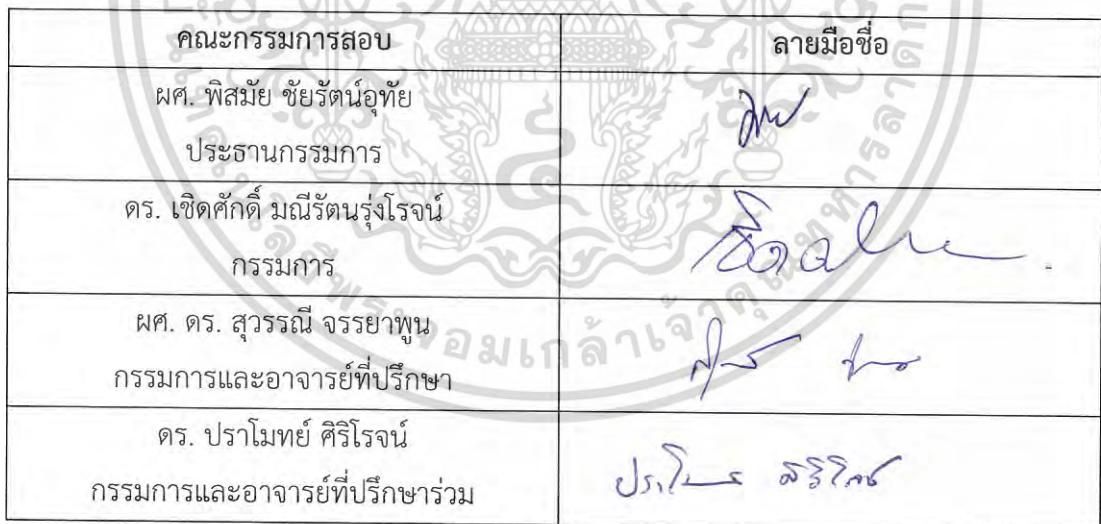 คณะกรรมการสอบ ลายมือชื่อ
ผศ. พิสมัย ชัยรัตน์อุทัย
ประธานกรรมการ
ดร. เชิดศักดิ์ มณีรัตนรุ่งโรจน์
กรรมการ
ผศ. ดร. สุวรรณี จรรยาพูน
กรรมการและอาจารย์ที่ปรึกษา
ดร. ปราโมทย์ ศิริโรจน์
กรรมการและอาจารย์ที่ปรึกษาร่วม